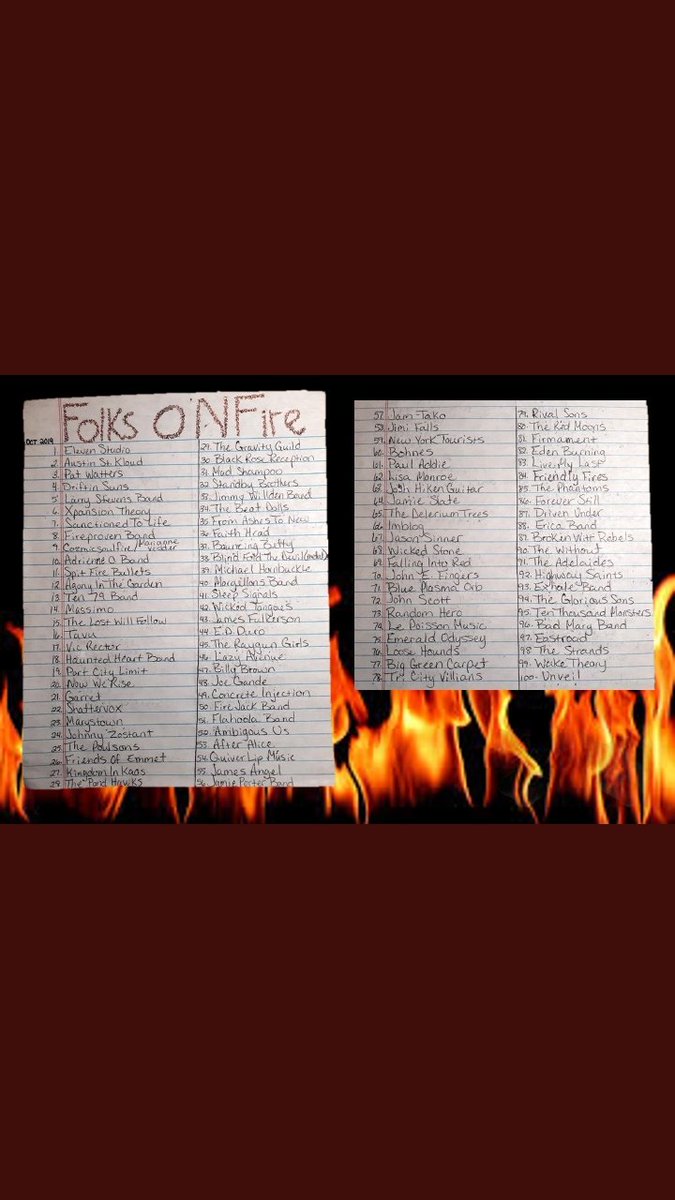 Folks O'N Fire
Oct 2019
1. Eleven Studio
2. Austin St. Kloud
3. Pat Watters
4. Driftin Suns
5. Larry Stevens Band
6. Xpansion Theory
7. Sanctioned To Life
8. Fireproven Band
9. Cozmicsoulfire/Marianne
10. Adriene O Band
11. Spit Fire Bullets
12. Agony In The Garden
13. Ten 79 Band
14. Mossimo
15. The Lost Will Follow
16. Tavu
17. Vic Rector
18. Haunted Heart Band
19. Port City Limit
20. Now We Rise
21. Garret
22. Shattervox
23. Marystown
24. Johnny Zostant
25. The Powsons
26. Friends Of Emmet
27. Kingdom In Kaos
29. The Pond Hawks
29. The Gravity Guild
30. Black Rose Reception
31. Mad Shampoo
32. Standby Brothers
33. Jimmy Willden Band
34. The Beat Dolls
35. From Ashes To New
36. Faith Head
37. Bouncing Betty
38. Blind Fold The Devil
39. Michael Hornbuckle
40. Morgillons Band
41. Sleep Signals
42. Wicked Tongues
43. James Fulkerson
44. E.D. Duro
45. The Raygun Girls
46. Liazy Avenue
47. Billy Brown
48. Joe Gande
49. Concrete Injection
50. Fire Jack Band
51. Flahoola Band
52. Ambigous Us
53. After Alice
54. Quiver Lip Music
55. James Angel
56. Jamie Porter Band
57. Jam-Tako
58. Jimi Falls
59. New York Tourists
60. Bohnes
61. Paul Addie
62. Lisa Monroe
63. Josh Hiken Guitar
64. Jamie Slate
65. The Delerium Trees
66. Imblog
67. Jason Sinner
68. Wicked Stone
69. Falling Into Red
70. John E. Fingers
71. Blue Plasma Orb
72. John Scott
73. Random Hero
74. Le Poisson Music
75. Emerald Odyssey
76. Loose Hounds
77. Big Green Carpet
78. Tri City Villians
79. Rival Sons
80. The Red Moons
81. Firmament
82. Eden Burning
83. Live My Last
84. Friendly Fires
85. The Phantoms
86. Forever Still
87. Driven Under
88. Erica Band
89. Broken Witt Rebels
90. The Without
91. The Adelaides
92. Highway Saints
93. Exhale Band
94. The Glorious Sons
95. Ten Thousand Monsters
96. Bad Mary Band
97. Eastroad
98. The Strands
99. Weike Theory
100. Unveil